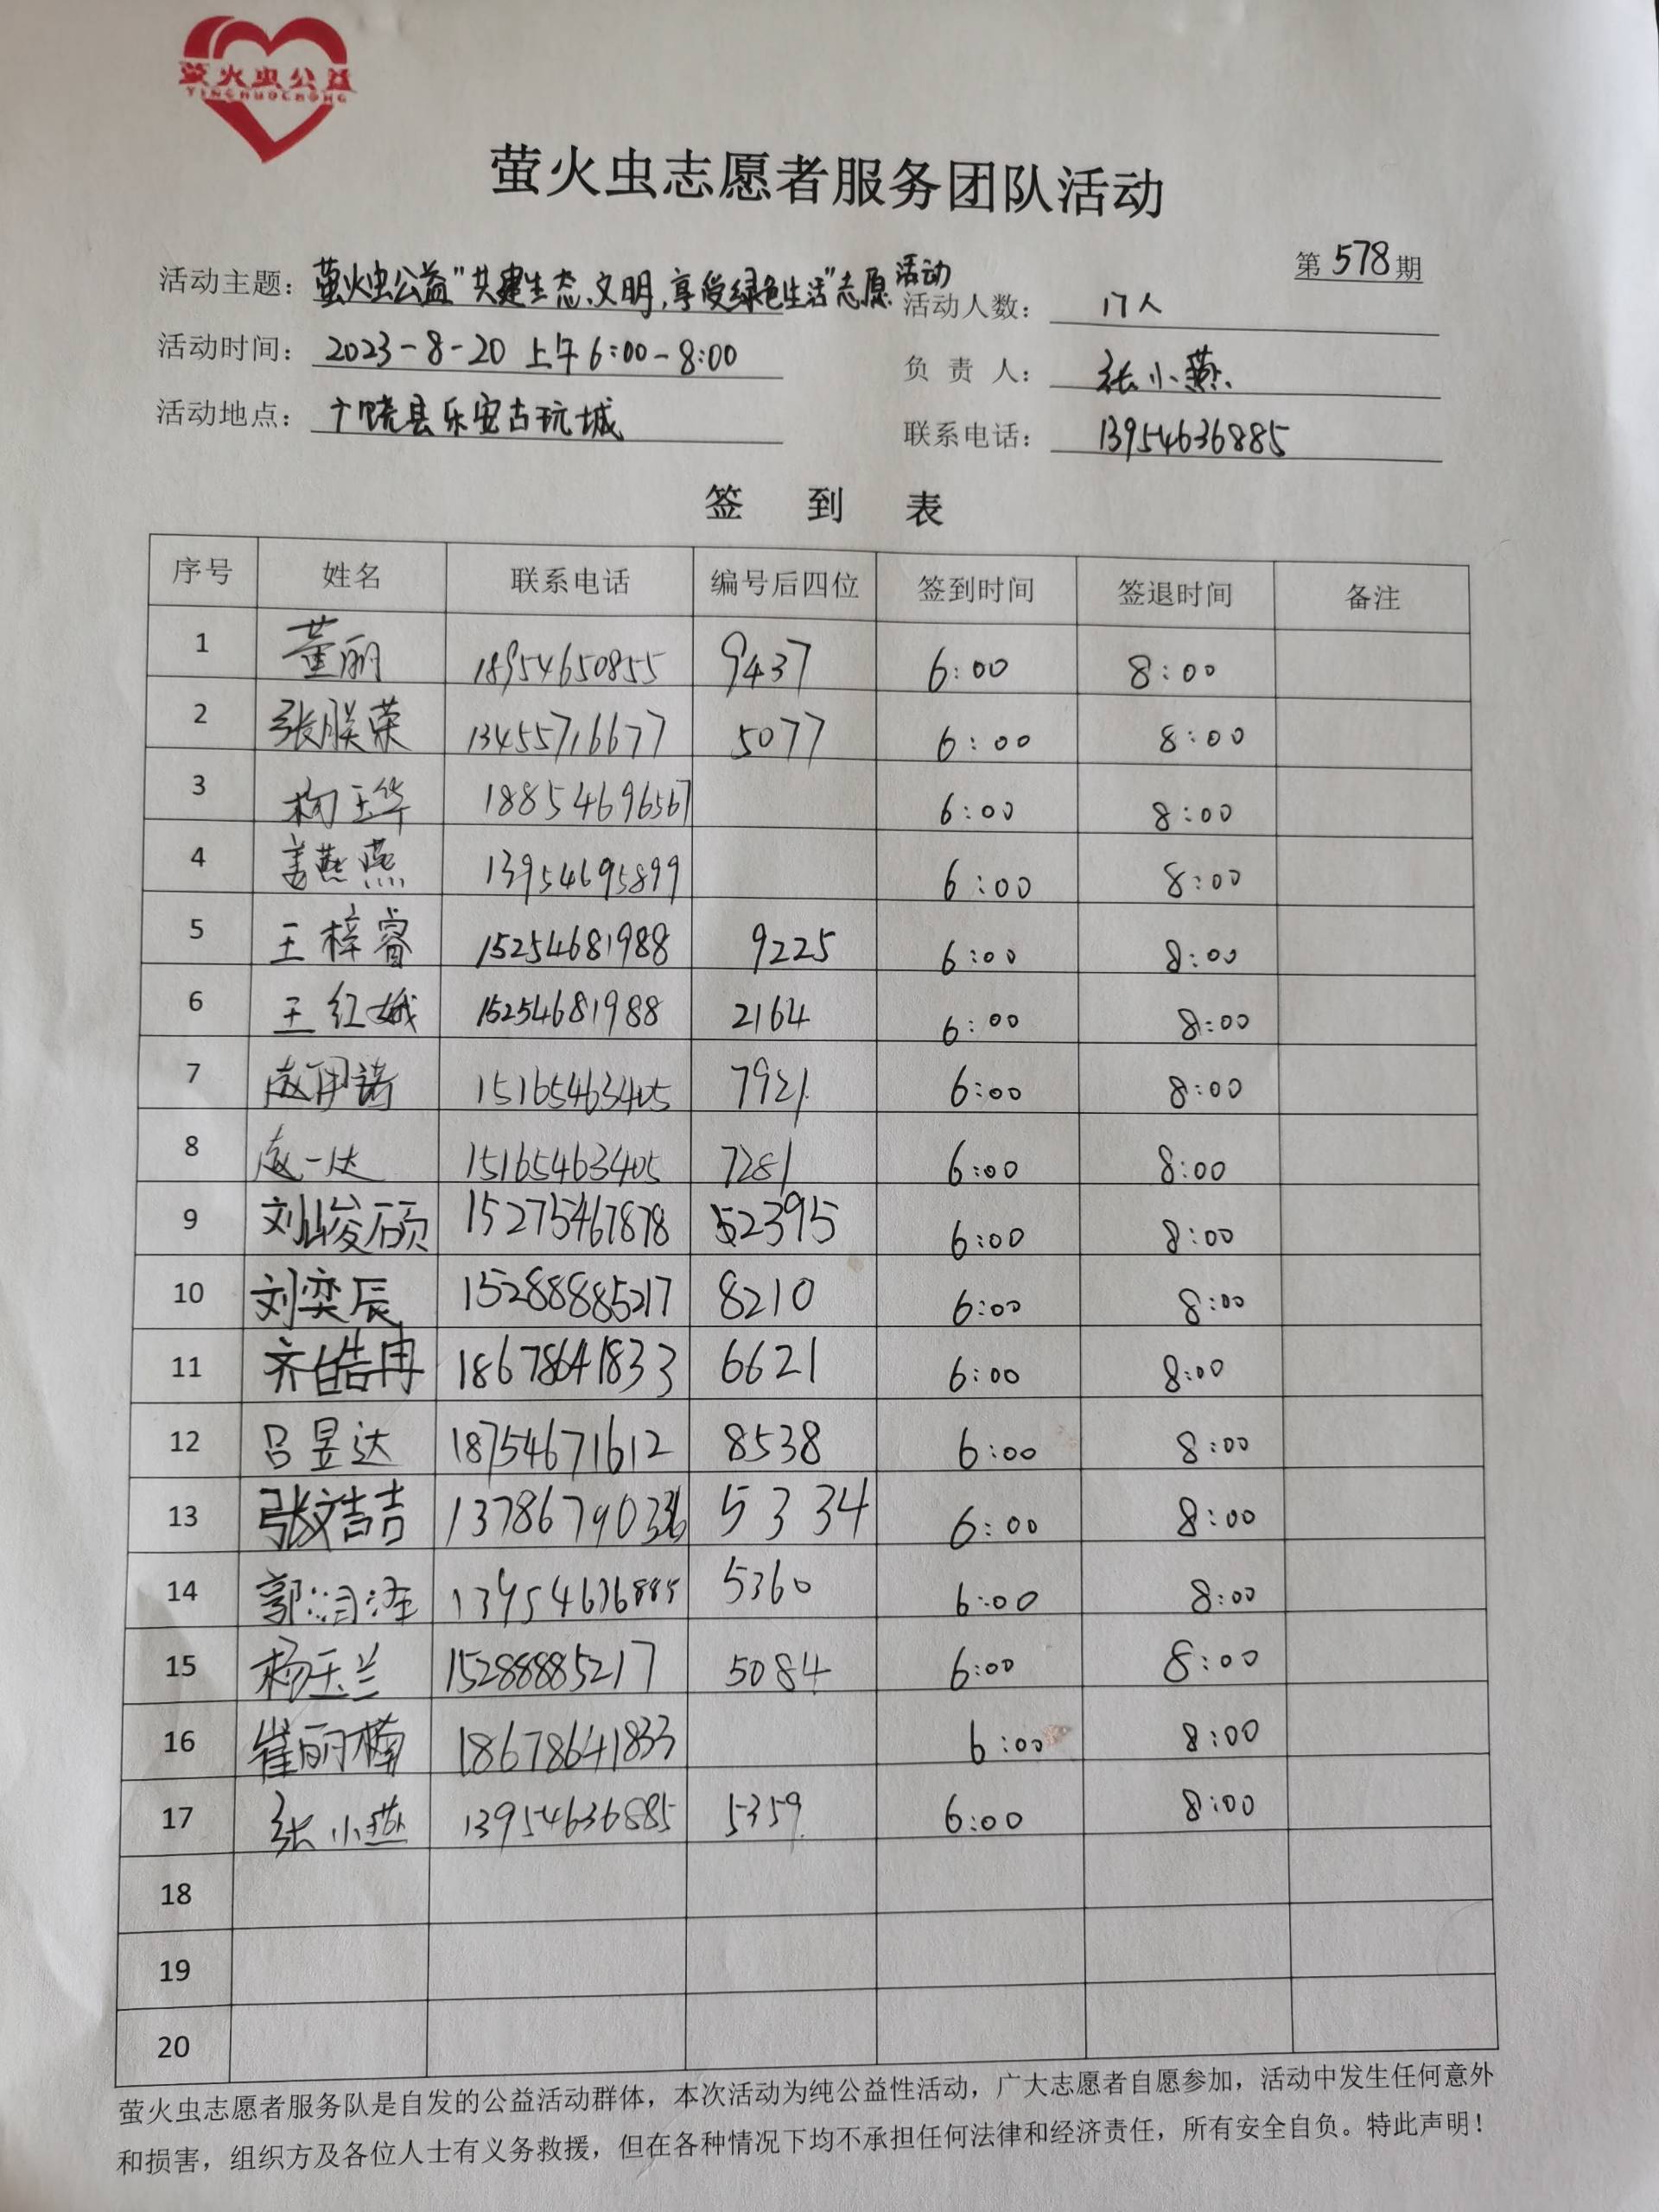 萤火虫公益
YINGHUOCHONG
萤火虫志愿者服务团队活动
第578期
活动主题：萤火虫公益"共建生态文明,享受绿色生活"志愿活动
活动人数：17人
活动时间：2023-8-20 上午6:00-8:00
负 责 人：张小燕
活动地点：广饶县乐安古玩城
联系电话：13954636885
签 到 表
序号 姓名 联系电话 编号后四位 签到时间 签退时间 备注
1 董丽 18954650855 9437 6:00 8:00
2 张朕荣 13455716677 5077 6:00 8:00
3 杨玉华 18854696567 6:00 8:00
4 姜燕燕 13954695899 6:00 8:00
5 王梓睿 15254681988 9225 6:00 8:00
6 王红娥 15254681988 2164 6:00 8:00
7 15165463405 7921 6:00 8:00
8 赵一达 15165463405 7281 6:00 8:00
9 刘峻硕 15275467878 52395 6:00 8:00
10 刘奕辰 15288885217 8210 6:00 8:00
11 齐皓冉 18678641833 6621 6:00 8:00
12 吕昱达 18754671612 8538 6:00 8:00
13 张文喆 5334 6:00 8:00
14 13954636885 5360 6:00 8:00
15 杨玉兰 15288885217 5084 6:00 8:00
16 崔丽楠 18678641833 6:00 8:00
17 张小燕 13954636885 5359 6:00 8:00
18
19
20
萤火虫志愿者服务队是自发的公益活动群体，本次活动为纯公益性活动，广大志愿者自愿参加，活动中发生任何意外
和损害，组织方及各位人士有义务救援，但在各种情况下均不承担任何法律和经济责任，所有安全自负。特此声明！